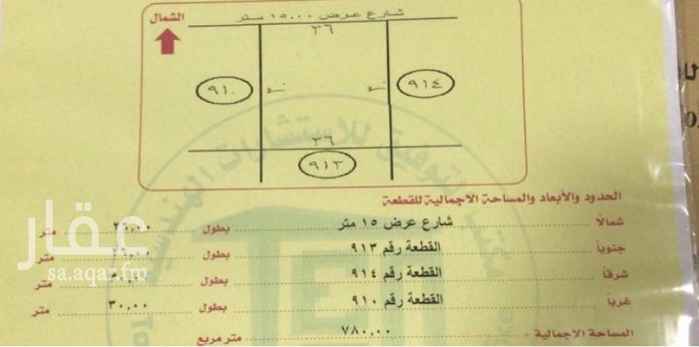 الشمال
شارع عرض ١٥.٠٠ متر
٢٦
٩١٠
٩١٤
٢٦
٩١٣
الحدود والأبعاد والمساحة الاجمالية للقطعة
شمالا شارع عرض ١٥ متر بطول ٢٦,٠٠ متر
جنوبا القطعة رقم ٩١٣ بطول ٢٦,٠٠ متر
شرقا القطعة رقم ٩١٤ بطول متر
غربا القطعة رقم ٩١٠ بطول ٣٠,٠٠ متر
المساحة الاجمالية ٧٨٠,٠٠ متر مربع
عقار
sa.aqar.fm